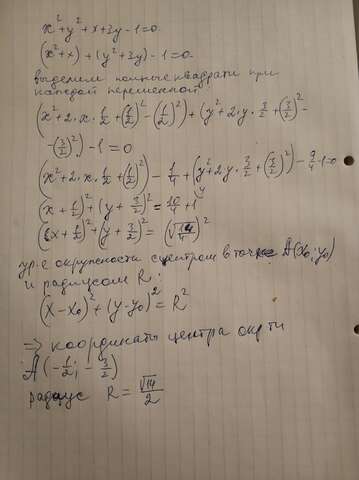 x² + y² + x + 3y - 1 = 0.
(x² + x) + (y² + 3y) - 1 = 0.
выделим полные квадраты при
каждой переменной
(x² + 2·x·1/2 + (1/2)² - (1/2)²) + (y² + 2·y·3/2 + (3/2)² -
- (3/2)²) - 1 = 0
(x² + 2·x·1/2 + (1/2)²) - 1/4 + (y² + 2·y·3/2 + (3/2)²) - 9/4 - 1 = 0
(x + 1/2)² + (y + 3/2)² = 10/4 + 1
(x + 1/2)² + (y + 3/2)² = (√(14/4))²
ур-е окружности с центром в точке A(x₀; y₀)
и радиусом R:
(x - x₀)² + (y - y₀)² = R²
⇒ координаты центра окр-ти
A(-1/2; -3/2)
радиус R = √14/2